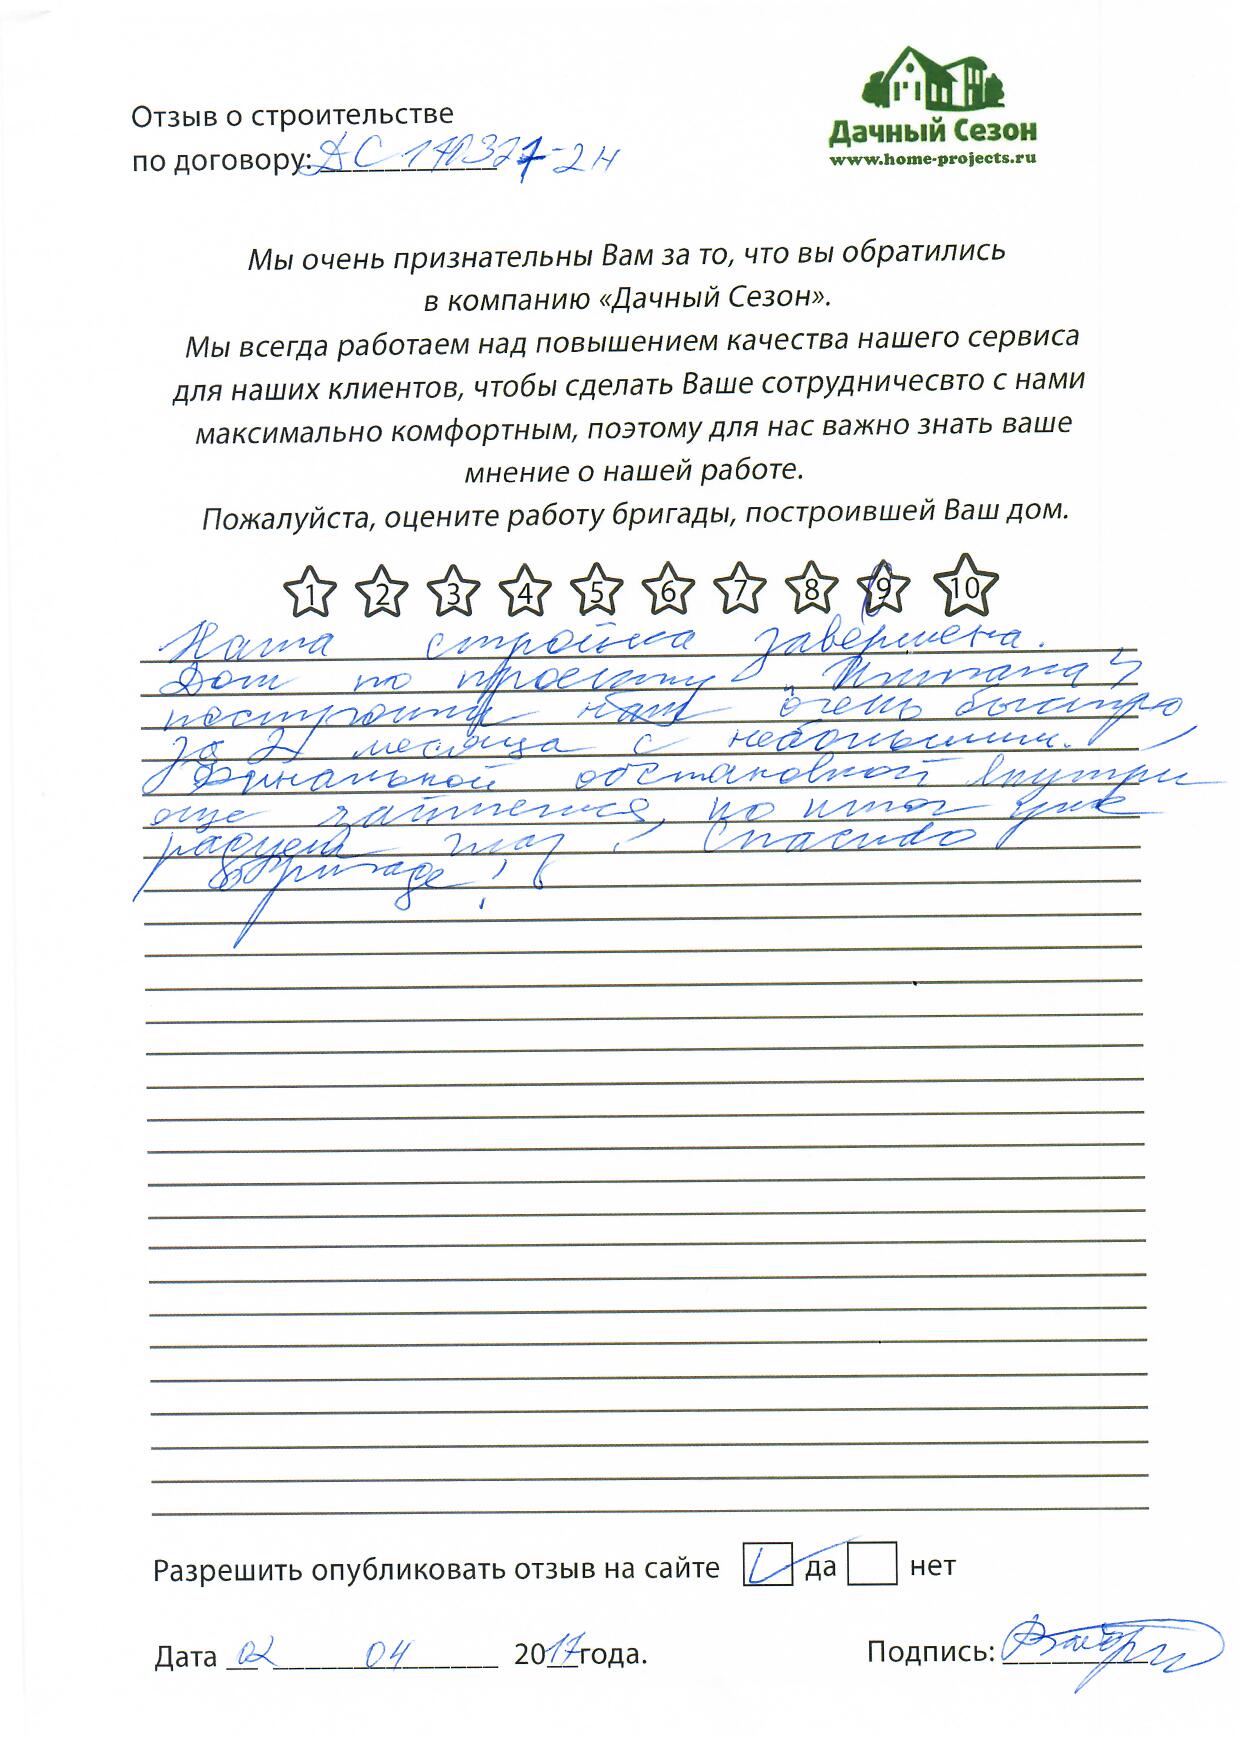 Отзыв о строительстве
Дачный Сезон
по договору: ДС 170327-2Н
www.home-projects.ru
Мы очень признательны Вам за то, что вы обратились
в компанию «Дачный Сезон».
Мы всегда работаем над повышением качества нашего сервиса
для наших клиентов, чтобы сделать Ваше сотрудничесвто с нами
максимально комфортным, поэтому для нас важно знать ваше
мнение о нашей работе.
Пожалуйста, оцените работу бригады, построившей Ваш дом.
1 2 3 4 5 6 7 8 9 10
Наша стройка завершена.
Дом по проекту
построили нам очень быстро
за 2 месяца с небольшим.
Финальной обстановкой внутри
еще займемся, но итог уже
радует глаз! Спасибо
бригаде!
Разрешить опубликовать отзыв на сайте да нет
Дата 02 04 2017 года. Подпись: